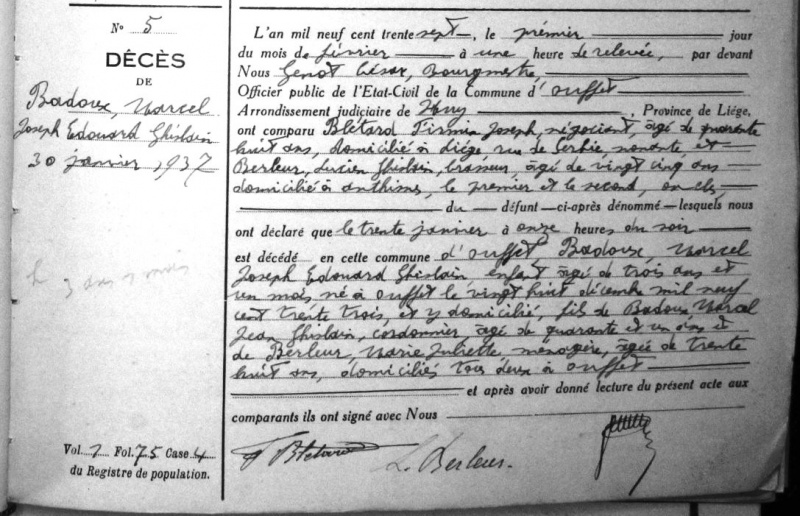 N° 5
DÉCÈS
DE
Badoux, Marcel
Joseph Edouard Ghislain
30 janvier 1937
3 ans 1 mois
Vol. 1 Fol. 75 Case 4
du Registre de population.
L'an mil neuf cent trente sept, le premier jour
du mois de février à une heure de relevée, par devant
Nous Genot César, Bourgmestre,
Officier public de l'Etat-Civil de la Commune d'ouffet
Arrondissement judiciaire de Huy, Province de Liége,
ont comparu Blétard Firmin Joseph, négociant, âgé de quarante
huit ans, domicilié à Liége rue de Serbie nonante et
Berleur, Lucien Ghislain, brasseur, âgé de vingt cinq ans
domicilié à anthisnes, le premier et le second, oncles
du défunt ci-après dénommé lesquels nous
ont déclaré que le trente janvier à onze heures du soir
est décédé en cette commune d'ouffet, Badoux, Marcel
Joseph Edouard Ghislain enfant âgé de trois ans et
un mois, né à ouffet le vingt huit décembre mil neuf
cent trente trois, et y domicilié, fils de Badoux Marcel
Jean Ghislain, cordonnier âgé de quarante et un ans et
de Berleur, Marie Juliette, ménagère, âgée de trente
huit ans, domiciliés tous deux à ouffet
et après avoir donné lecture du présent acte aux
comparants ils ont signé avec Nous
F Blétard
L. Berleur.